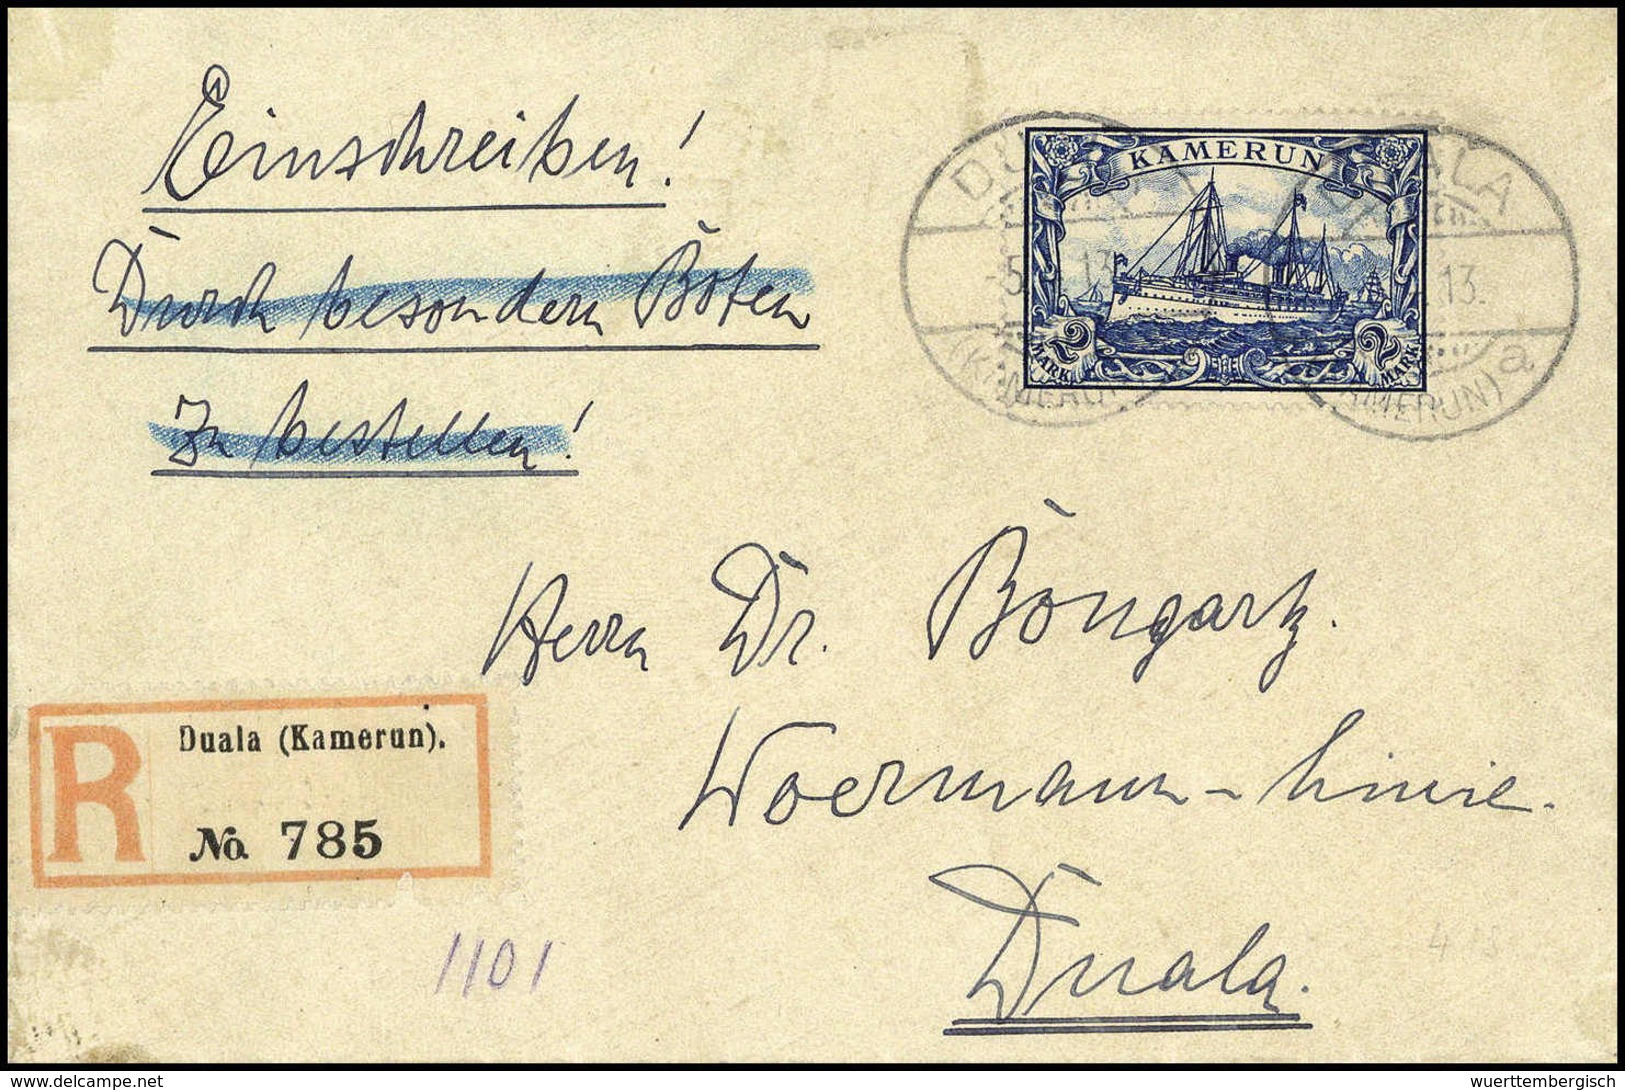 Einschreiben!
Durch besondern Boten
zu bestellen!
KAMERUN
2 MARK
2 MARK
DUALA
13.
a
(KAMERUN)
Herrn Dr. Bongartz.
Woermann-Linie.
Duala.
R
Duala (Kamerun).
No. 785
1101
www.delcampe.net
wuerttembergisch